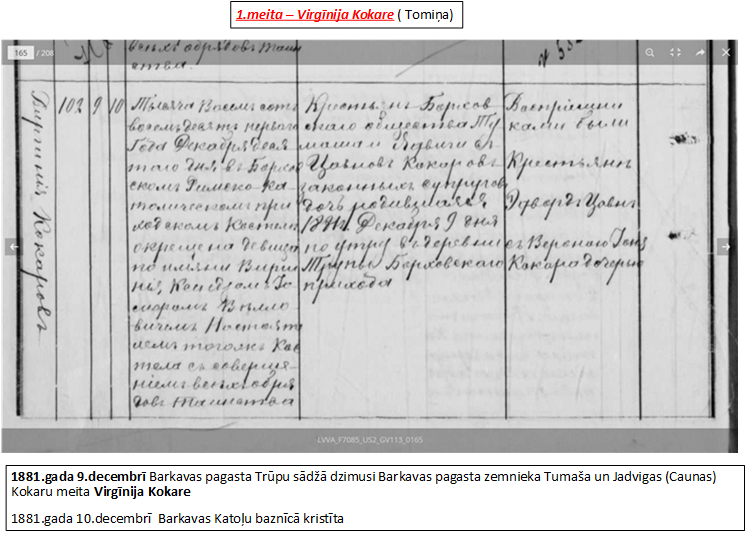 1.meita – Virgīnija Kokare ( Tomiņa)
165 / 208
всехъ обрядовъ таин
ства.
Виргинія Кокаровъ
102 9 10
Тысяча Восемъ сотъ
восемьдесятъ перваго
Года Декабря деся
таго дня въ Борхов
скомъ Римско-Ка-
толическомъ при
ходскомъ Костелѣ
окрещена девица
по имяни Вирги
нія, Ксендзомъ
Настояте
лемъ тогожъ Кос
тела съ соверше-
ніемъ всехъ обря
довъ Таинства
Крестьянъ Борхов
скаго общества Ту
маша и Ядвиги
Цавновъ Кокаровъ
законныхъ супруговъ
дочь родившаяся
1881 г. Декабря 9 дня
по утру въ деревне
Трупы Борховскаго
прихода
Воспріемни
ками были
Крестьянъ
Цавнъ
съ Вероною
Кокара дочерью
LVVA_F7085_US2_GV113_0165
1881.gada 9.decembrī Barkavas pagasta Trūpu sādžā dzimusi Barkavas pagasta zemnieka Tumaša un Jadvigas (Caunas)
Kokaru meita Virgīnija Kokare
1881.gada 10.decembrī Barkavas Katoļu baznīcā kristīta